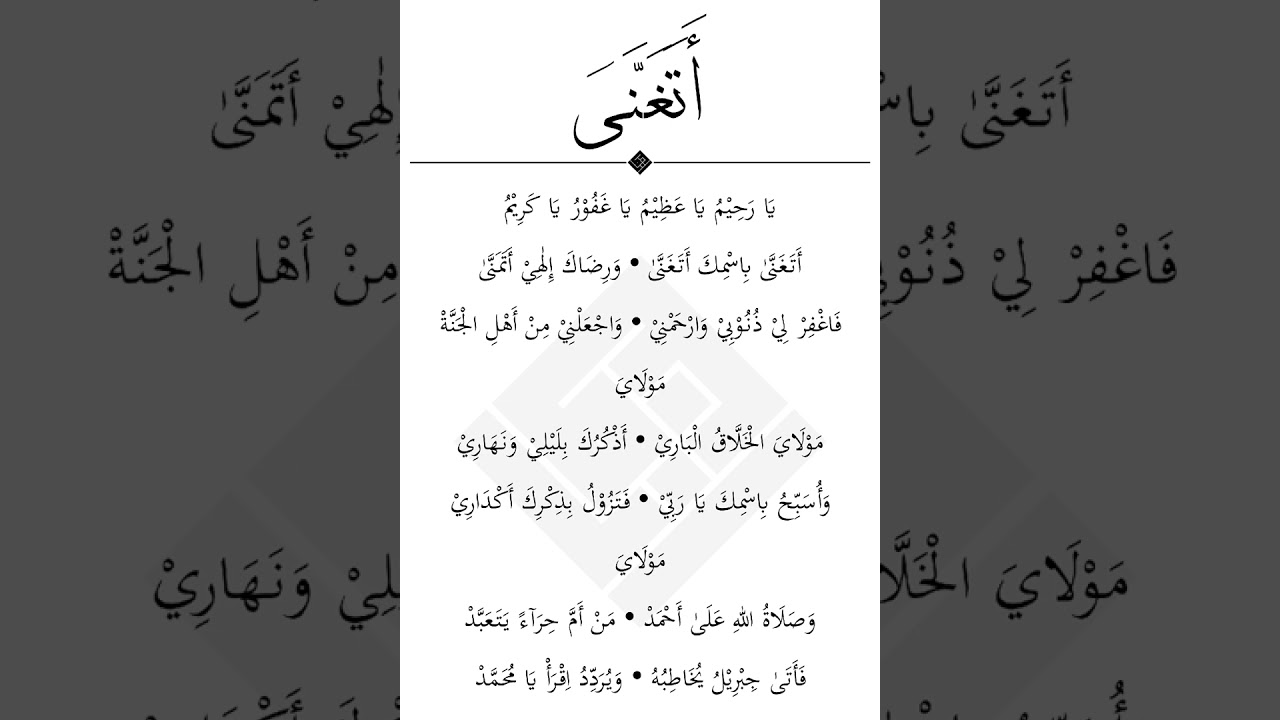 أَتَغَنَّى
يَا رَحِيْمُ يَا عَظِيْمُ يَا غَفُوْرُ يَا كَرِيْمُ
أَتَغَنَّىٰ بِاسْمِكَ أَتَغَنَّىٰ • وَرِضَاكَ إِلٰهِيْ أَتَمَنَّىٰ
فَاغْفِرْ لِيْ ذُنُوْبِيْ وَارْحَمْنِيْ • وَاجْعَلْنِيْ مِنْ أَهْلِ الْجَنَّةْ
مَوْلَايَ
مَوْلَايَ الْخَلَّاقُ الْبَارِيْ • أَذْكُرُكَ بِلَيْلِيْ وَنَهَارِيْ
وَأُسَبِّحُ بِاسْمِكَ يَا رَبِّيْ • فَتَزُوْلُ بِذِكْرِكَ أَكْدَارِيْ
مَوْلَايَ
وَصَلَاةُ اللهِ عَلَىٰ أَحْمَدْ • مَنْ أَمَّ حِرَآءً يَتَعَبَّدْ
فَأَتَىٰ جِبْرِيْلُ يُخَاطِبُهُ • وَيُرَدِّدُ اِقْرَأْ يَا مُحَمَّدْ